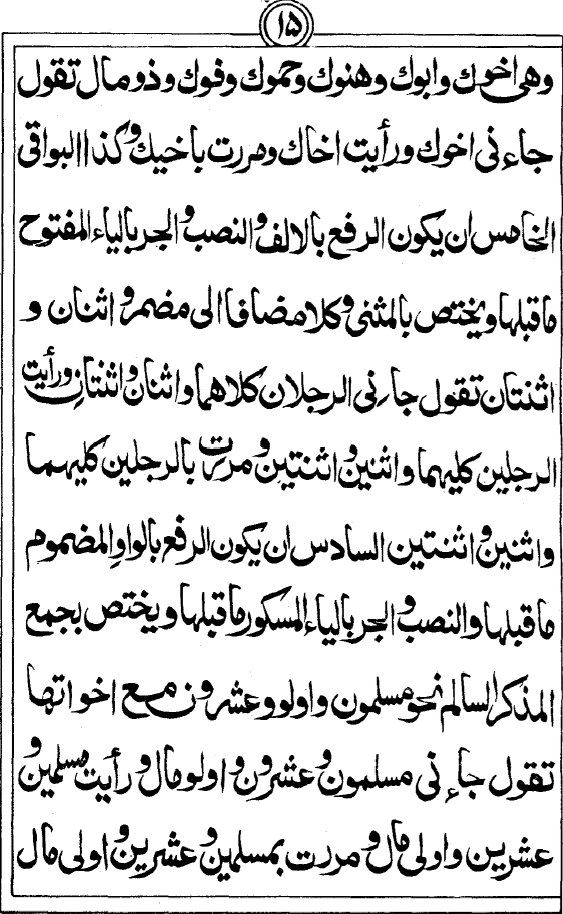 ١٥
وهي اخوك وابوك وهنوك وحموك وفوك وذو مال تقول
جاءني اخوك ورأيت اخاك ومررت باخيك وكذا البواقي
الخامس ان يكون الرفع بالالف والنصب والجر بالياء المفتوح
ما قبلها ويختص بالمثنى وكلا مضافا الى مضمر واثنان و
اثنتان تقول جاءني الرجلان كلاهما واثنان واثنتان ورأيت
الرجلين كليهما واثنين واثنتين ومررت بالرجلين كليهما
واثنين واثنتين السادس ان يكون الرفع بالواو المضموم
ما قبلها والنصب والجر بالياء المسكور ما قبلها ويختص بجمع
المذكر السالم نحو مسلمون واولو وعشرون مع اخواتها
تقول جاءني مسلمون وعشرون واولو مال ورأيت مسلمين و
عشرين واولى مال ومررت بمسلمين وعشرين واولى مال